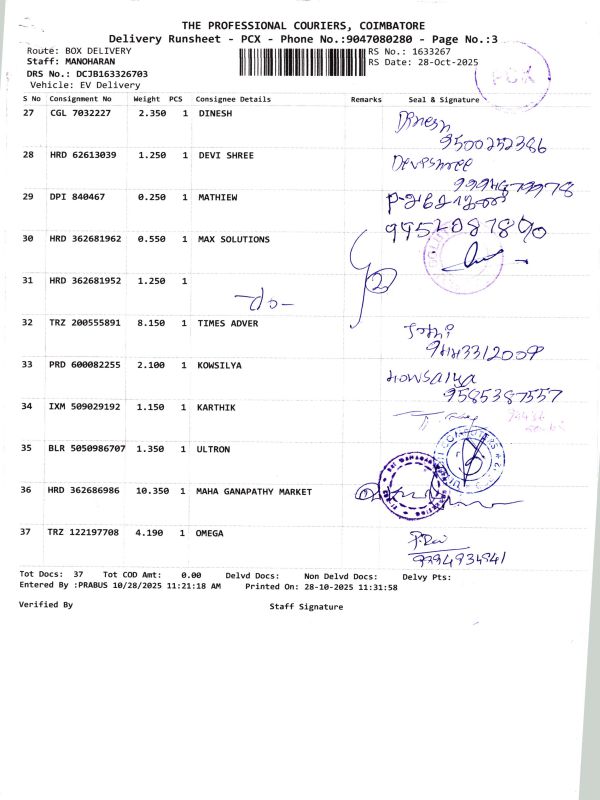 THE PROFESSIONAL COURIERS, COIMBATORE
Delivery Runsheet - PCX - Phone No.:9047080280 - Page No.:3
Route: BOX DELIVERY RS No.: 1633267
Staff: MANOHARAN RS Date: 28-Oct-2025
DRS No.: DCJB163326703
Vehicle: EV Delivery
PCX
S No Consignment No Weight PCS Consignee Details Remarks Seal & Signature
27 CGL 7032227 2.350 1 DINESH Dinesh
9500252386
28 HRD 62613039 1.250 1 DEVI SHREE Devishree
29 DPI 840467 0.250 1 MATHIEW
30 HRD 362681962 0.550 1 MAX SOLUTIONS
31 HRD 362681952 1.250 1
-do-
32 TRZ 200555891 8.150 1 TIMES ADVER
33 PRD 600082255 2.100 1 KOWSILYA Kowsalya
9585387557
34 IXM 509029192 1.150 1 KARTHIK
35 BLR 5050986707 1.350 1 ULTRON
36 HRD 362686986 10.350 1 MAHA GANAPATHY MARKET
37 TRZ 122197708 4.190 1 OMEGA
9394934941
Tot Docs: 37 Tot COD Amt: 0.00 Delvd Docs: Non Delvd Docs: Delvy Pts:
Entered By :PRABUS 10/28/2025 11:21:18 AM Printed On: 28-10-2025 11:31:58
Verified By Staff Signature